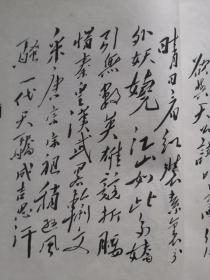 欲与天公試比高
晴日看红装素裹分
外妖娆江山如此多娇
引無數英雄競折腰
惜秦皇漢武略輸文
采唐宗宋祖稍遜風
騷一代天驕成吉思汗